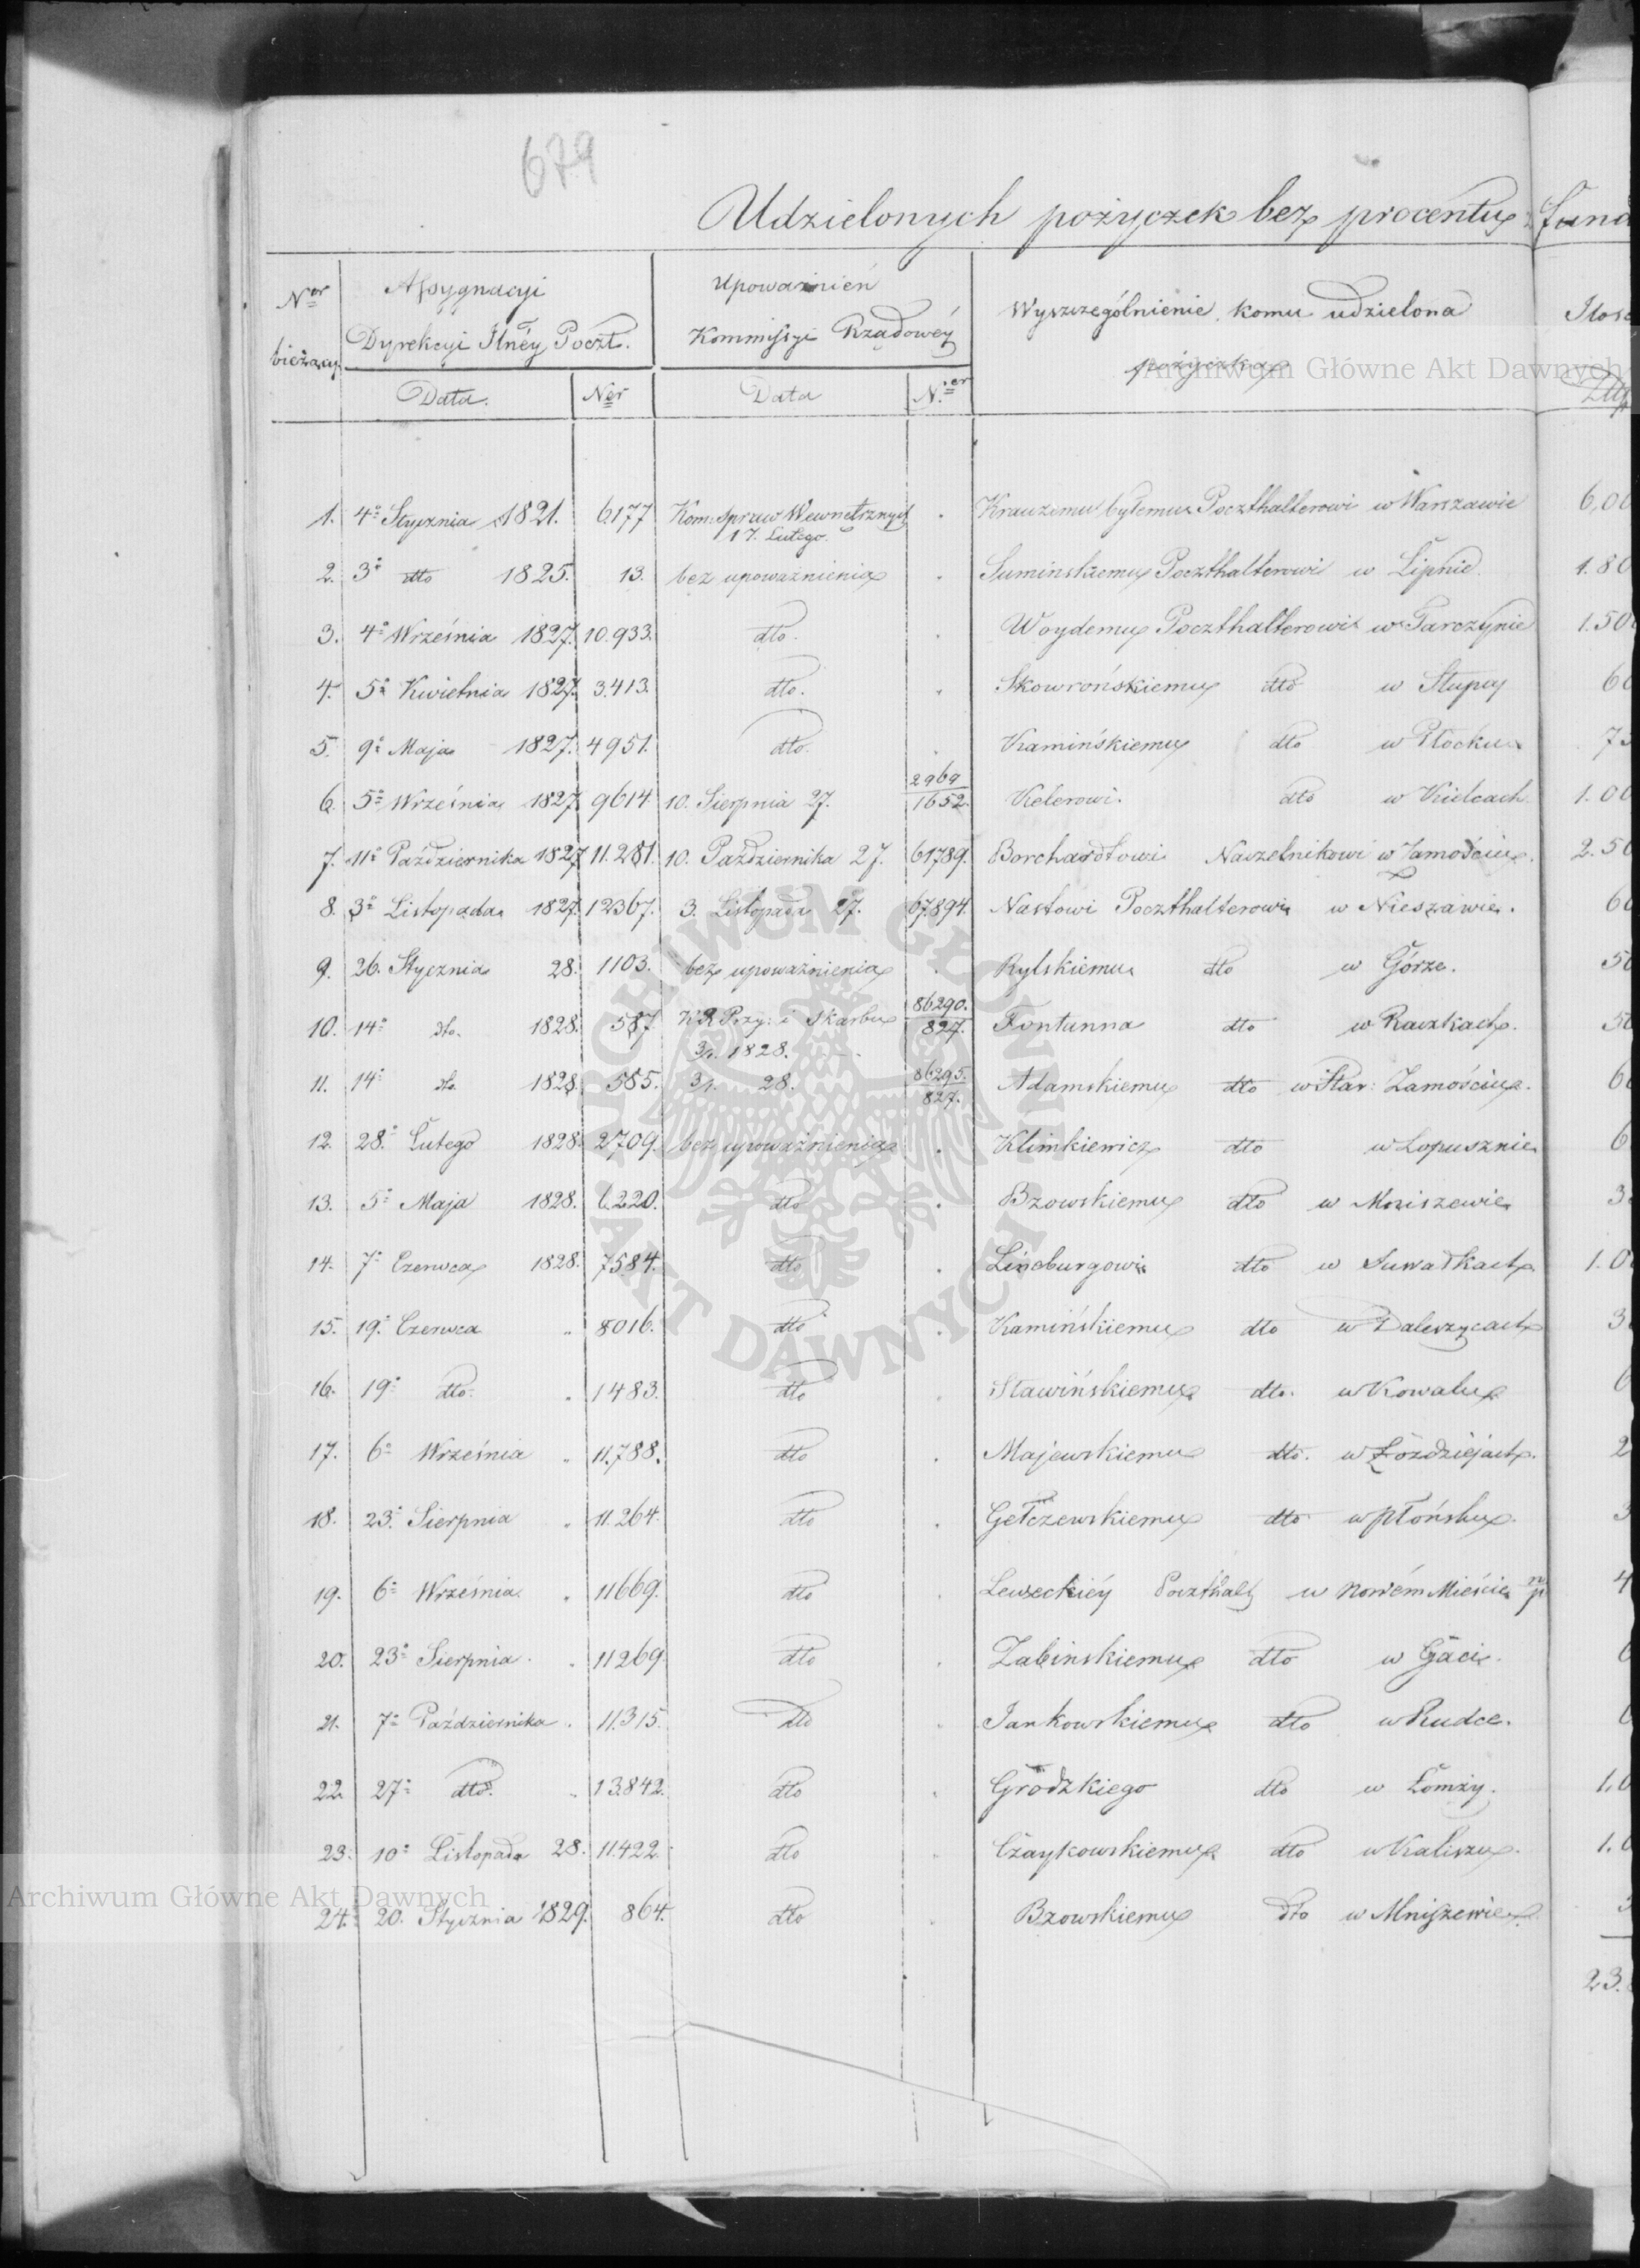 679
Udzielonych pożyczek bez procentu
Nor bieżący
Assygnacyi Dyrekcyi Jlnéy Poczt.
Upoważnień Kommissyi Rządowéy
Wyszczególnienie komu udzielona pożyczka
Data. Ner Data N.er
1. 4o Stycznia 1821. 6177 Kom: Spraw Wewnętrznych 17. Lutego. Krauzemu byłemu Poczthalterowi w Warszawie 6,00
2. 3o dto 1825. 13. bez upoważnienia Suminskiemu Poczthalterowi w Lipnie. 1.80
3. 4o Września 1827. 10.933. dto. Woydemu Poczthalterowi w Tarczynie 1.50
4. 5o Kwietnia 1827. 3.413. dto. Skowrońskiemu dto w Słupcy 60
5. 9o Maja 1827. 4951. dto. Kamińskiemu dto w Płocku
6. 5o Września 1827. 9614 10. Sierpnia 27. 2969/1652. Kelerowi. dto w Kielcach. 1.00
7. 11o Października 1827 11.281. 10. Października 27. 61789. Borchardtowi Naczelnikowi w Zamościu. 2.50
8. 3o Listopada 1827. 12367. 3. Listopada 27. 67894. Nastowi Poczthalterowi w Nieszawie. 60
9. 26. Stycznia 28. 1103. bez upoważnienia Rylskiemu dto w Górze. 50
10. 14o dto. 1828. 587. K R Przy: i Skarbu 3/1. 1828. 86290./827. Fontanna dto w Raczkach. 50
11. 14o dto 1828. 585. 3/1. 28. 86295./827. Adamskiemu dto w Star: Zamościu.
12. 28.o Lutego 1828. 2709. bez upoważnienia Klimkiewicz dto w Lopusznie
13. 5o Maja 1828. 6.220. dto Bzowskiemu dto w Mniszewie
14. 7o Czerwca 1828. 7584. dto dto w Suwałkach 1.0
15. 19.o Czerwca „ 8016. dto Kamińskiemu dto w Daleszycach
16. 19o dto. „ 1483. dto Sławińskiemu dto. w Kowalu
17. 6o Września „ 11.788. dto Majewskiemu dto. w Łoździejach.
18. 23.o Sierpnia „ 11.264. dto Gełczewskiemu dto w Płońsku.
19. 6o Września „ 11669. dto Poczthalt w Nowém Mieście n/p
20. 23o Sierpnia „ 11269 dto Zabinskiemu dto w Gaci.
21. 7o Października „ 11.315. dto Jankowskiemu dto w Rudce.
22. 27o dto. „ 13.842. dto Grodzkiego dto w Łomży. 1.0
23. 10o Listopada 28. 11.422. dto Czaykowskiemu dto w Kaliszu. 1.0
24. 20. Stycznia 1829. 864. dto Bzowskiemu dto w Mniszewie.
23.
Archiwum Główne Akt Dawnych
ARCHIWUM GŁÓWNE AKT DAWNYCH
Archiwum Główne Akt Dawnych